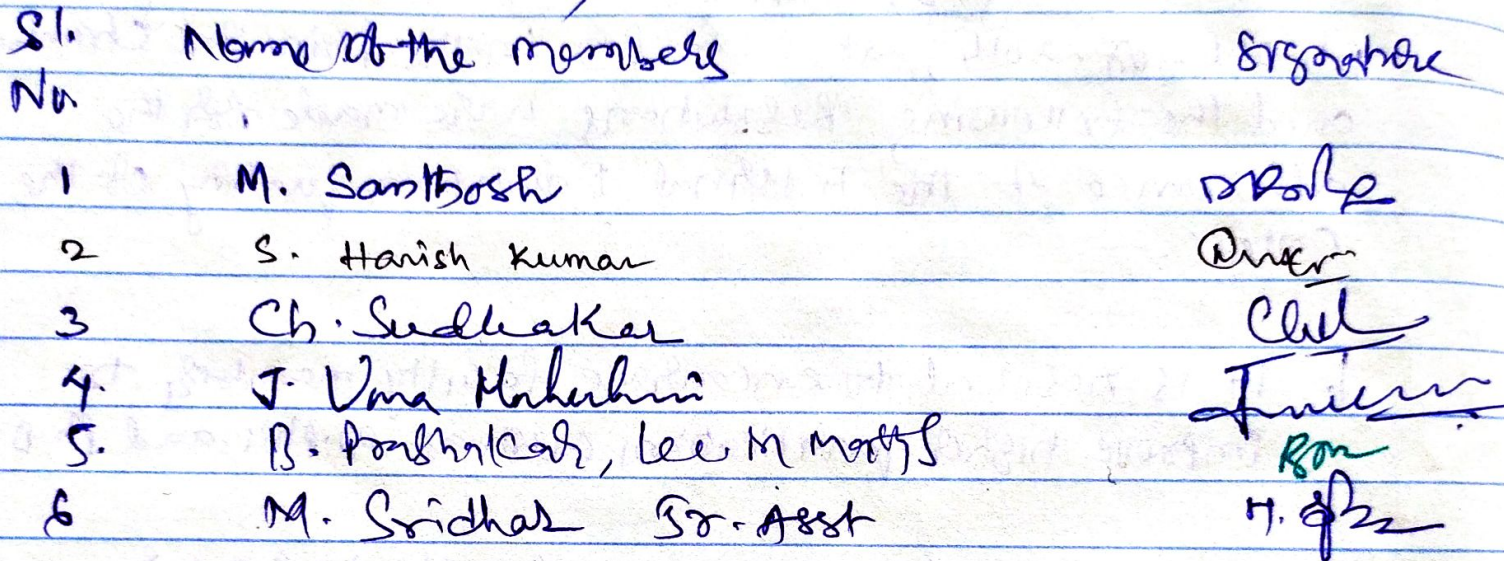 Sl. Name of the members Signature
No
1 M. Santhosh
2 S. Harish Kumar
3 Ch. Sudhakar
4. J. Uma Maheshwari
5. B. Prabhakar, Lec in Maths
6 M. Sridhar Jr. Asst